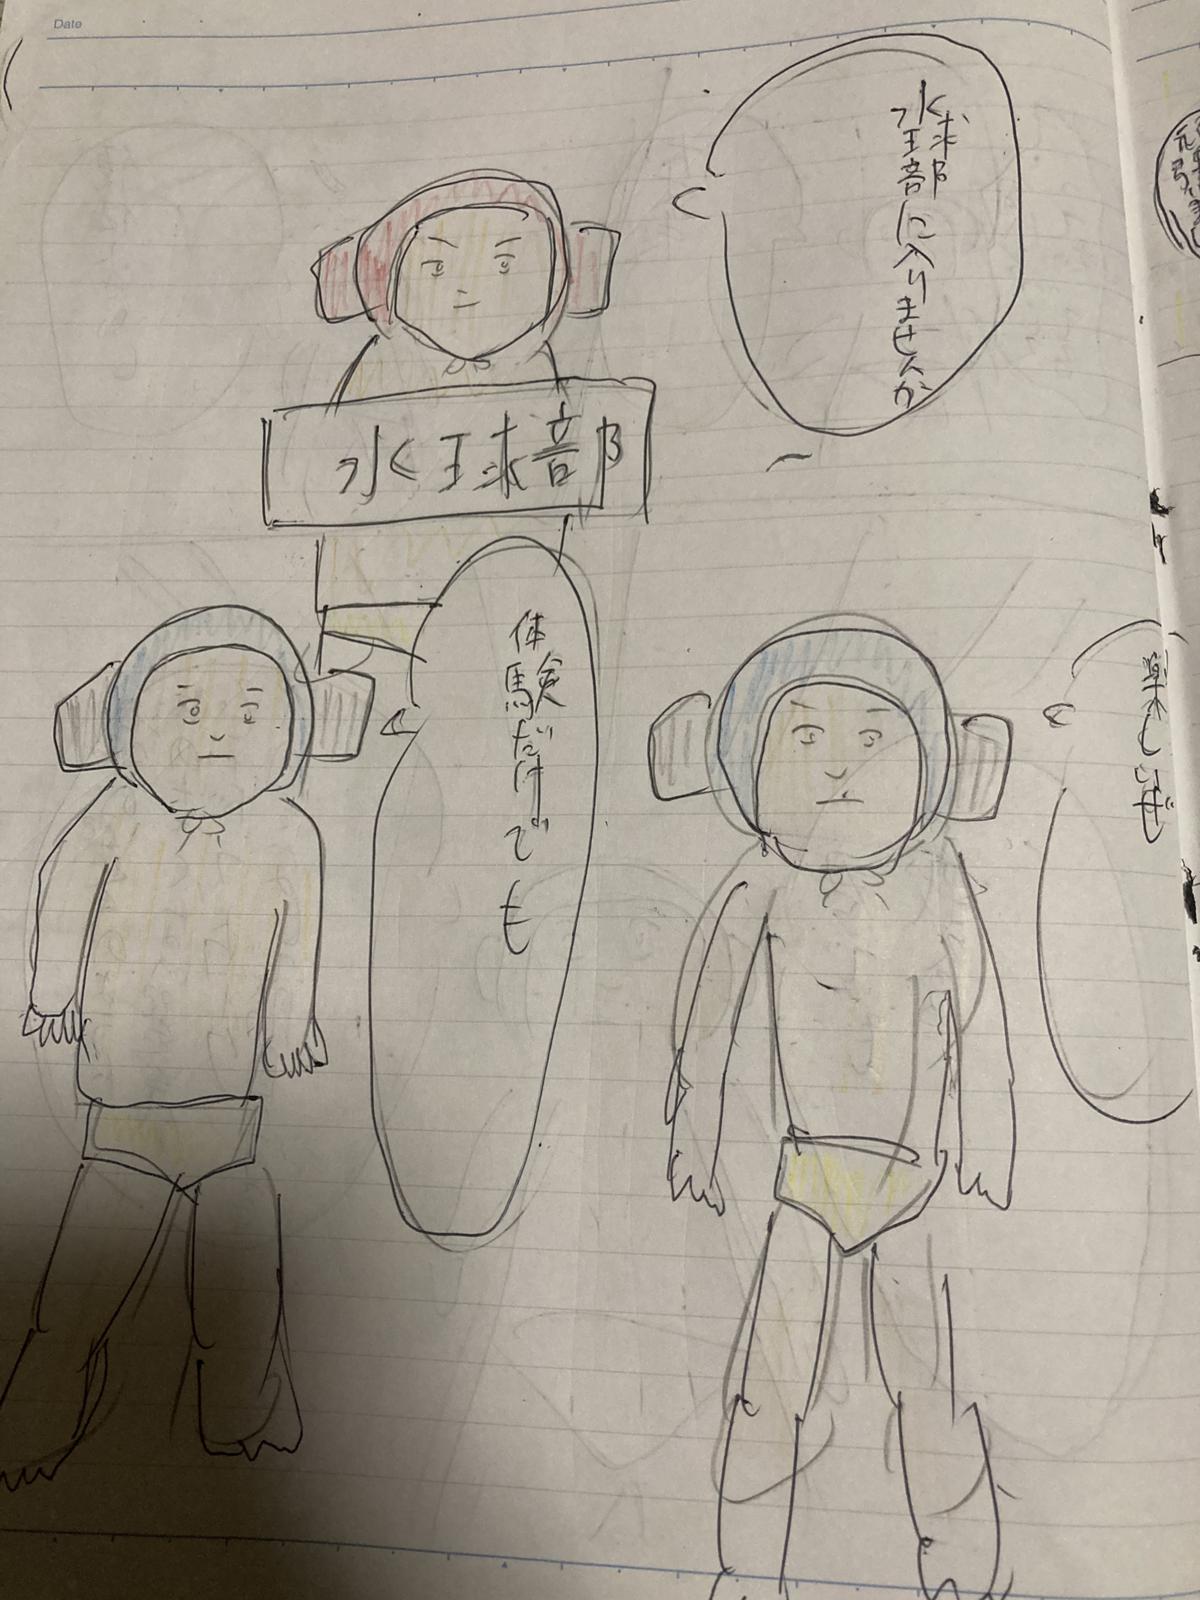 Date
水球部に入りませんか
水球部
体験だけでも
楽しいぜ